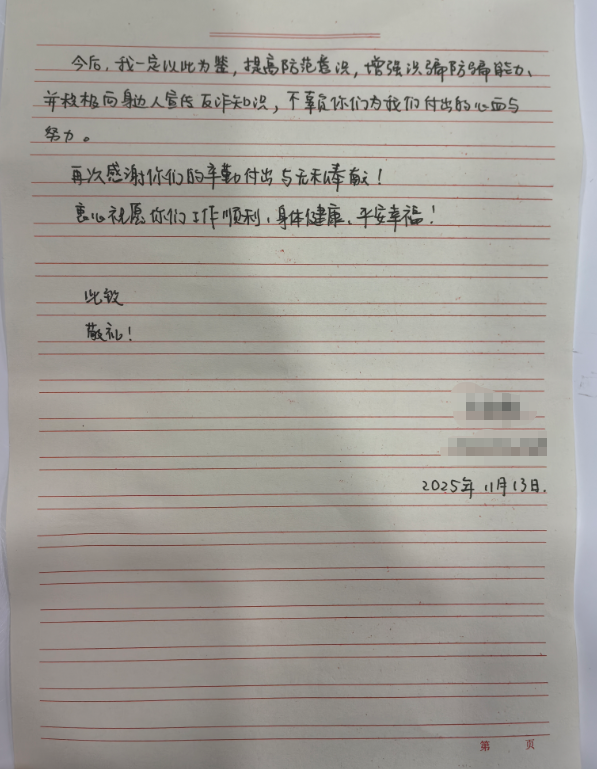 今后，我一定以此为鉴，提高防范意识，增强识骗防骗能力、
并积极向身边人宣传反诈知识，不辜负你们为我们付出的心血与
努力。
再次感谢你们的辛勤付出与无私奉献！
衷心祝愿你们工作顺利，身体健康、平安幸福！
此致
敬礼！
2025年11月13日.
第 页